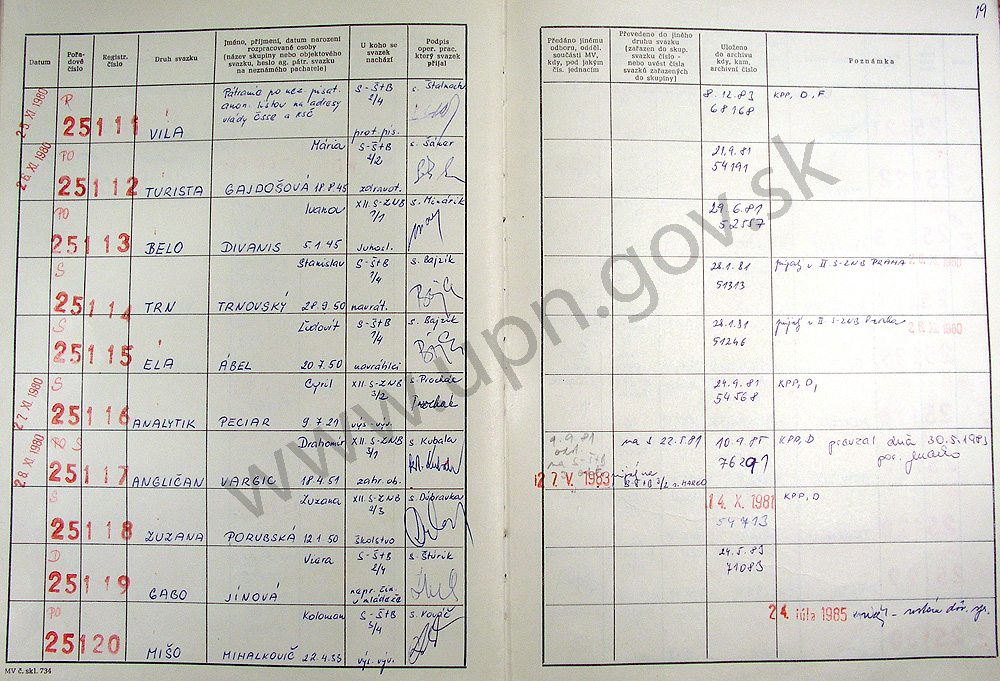 19
Datum
Pořadové číslo
Registr. číslo
Druh svazku
Jméno, příjmení, datum narození rozpracované osoby (název skupiny nebo objektového svazku, heslo ag. pátr. svazku na neznámého pachatele)
U koho se svazek nachází
Podpis oper. prac. který svazek přijal
Předáno jinému odboru, odděl. součásti MV, kdy, pod jakým čís. jednacím
Převedeno do jiného druhu svazku (zařazen do skup. svazku číslo - nebo uvést čísla svazků zařazených do skupiny)
Uloženo do archivu kdy, kam, archivní číslo
Poznámka
25 XI 1980
P
25111
VILA
Pátranie po nez. pisat.
anon. listov na adresy
vlády ČSSR a KSČ
S-ŠtB
2/4
prot. pís.
8.12.83
68168
KPP, D, F
26. XI. 1980
PO
25112
TURISTA
Mária
GAJDOŠOVÁ 18.8.45
S-ŠtB
2/2
zdravot.
s. Šáker
21.9.81
54191
PO
25113
BELO
Ivanov
DIVANIS 5.1.45
XII. S-ZNB
7/1
Juhosl.
s. Minárik
29.6.81
52557
S
25114
TRN
Stanislav
TRNOVSKÝ 28.9.50
S-ŠtB
7/4
navrát.
s. Bajzík
28.1.81
51313
prijal v II. S-ZNB PRAHA
S
25115
ELA
Ľudovít
ÁBEL 20.7.50
S-ŠtB
7/4
navrátilci
s. Bajzík
28.1.81
51246
prijal v II S-ZNB Praha
27. XI. 1980
S
25116
ANALYTIK
Cyril
PECIAR 9.7.21
XII. S-ZNB
3/2
výs.-výv.
s. Prochác
24.9.81
54568
KPP, D,
28. XI. 1980
PO S
25117
ANGLIČAN
Drahomír
VARGIC 18.4.51
XII. S-ZNB
3/1
zahr. ob.
s. Kubala
9.9.81
27. V. 1983
na S 22.5.81
10.9.85
76291
KPP, D prevzal dňa 30.5.1983
S
25118
ZUZANA
Zuzana
PORUBSKÁ 12.1.50
XII. S-ZNB
2/3
školstvo
s. Dúpravka
14. X. 1981
54713
KPP, D
D
25119
GABO
Viera
JÍNOVÁ
S-ŠtB
2/4
nepr. čin.
v mládeže
s. Štúrik
24.5.83
71083
PO
25120
MIŠO
Koloman
MIHALKOVIČ 22.4.33
S-ŠtB
5/4
výs. výv.
s. Kováč
24. júla 1985
MV č. skl. 734
www.upn.gov.sk